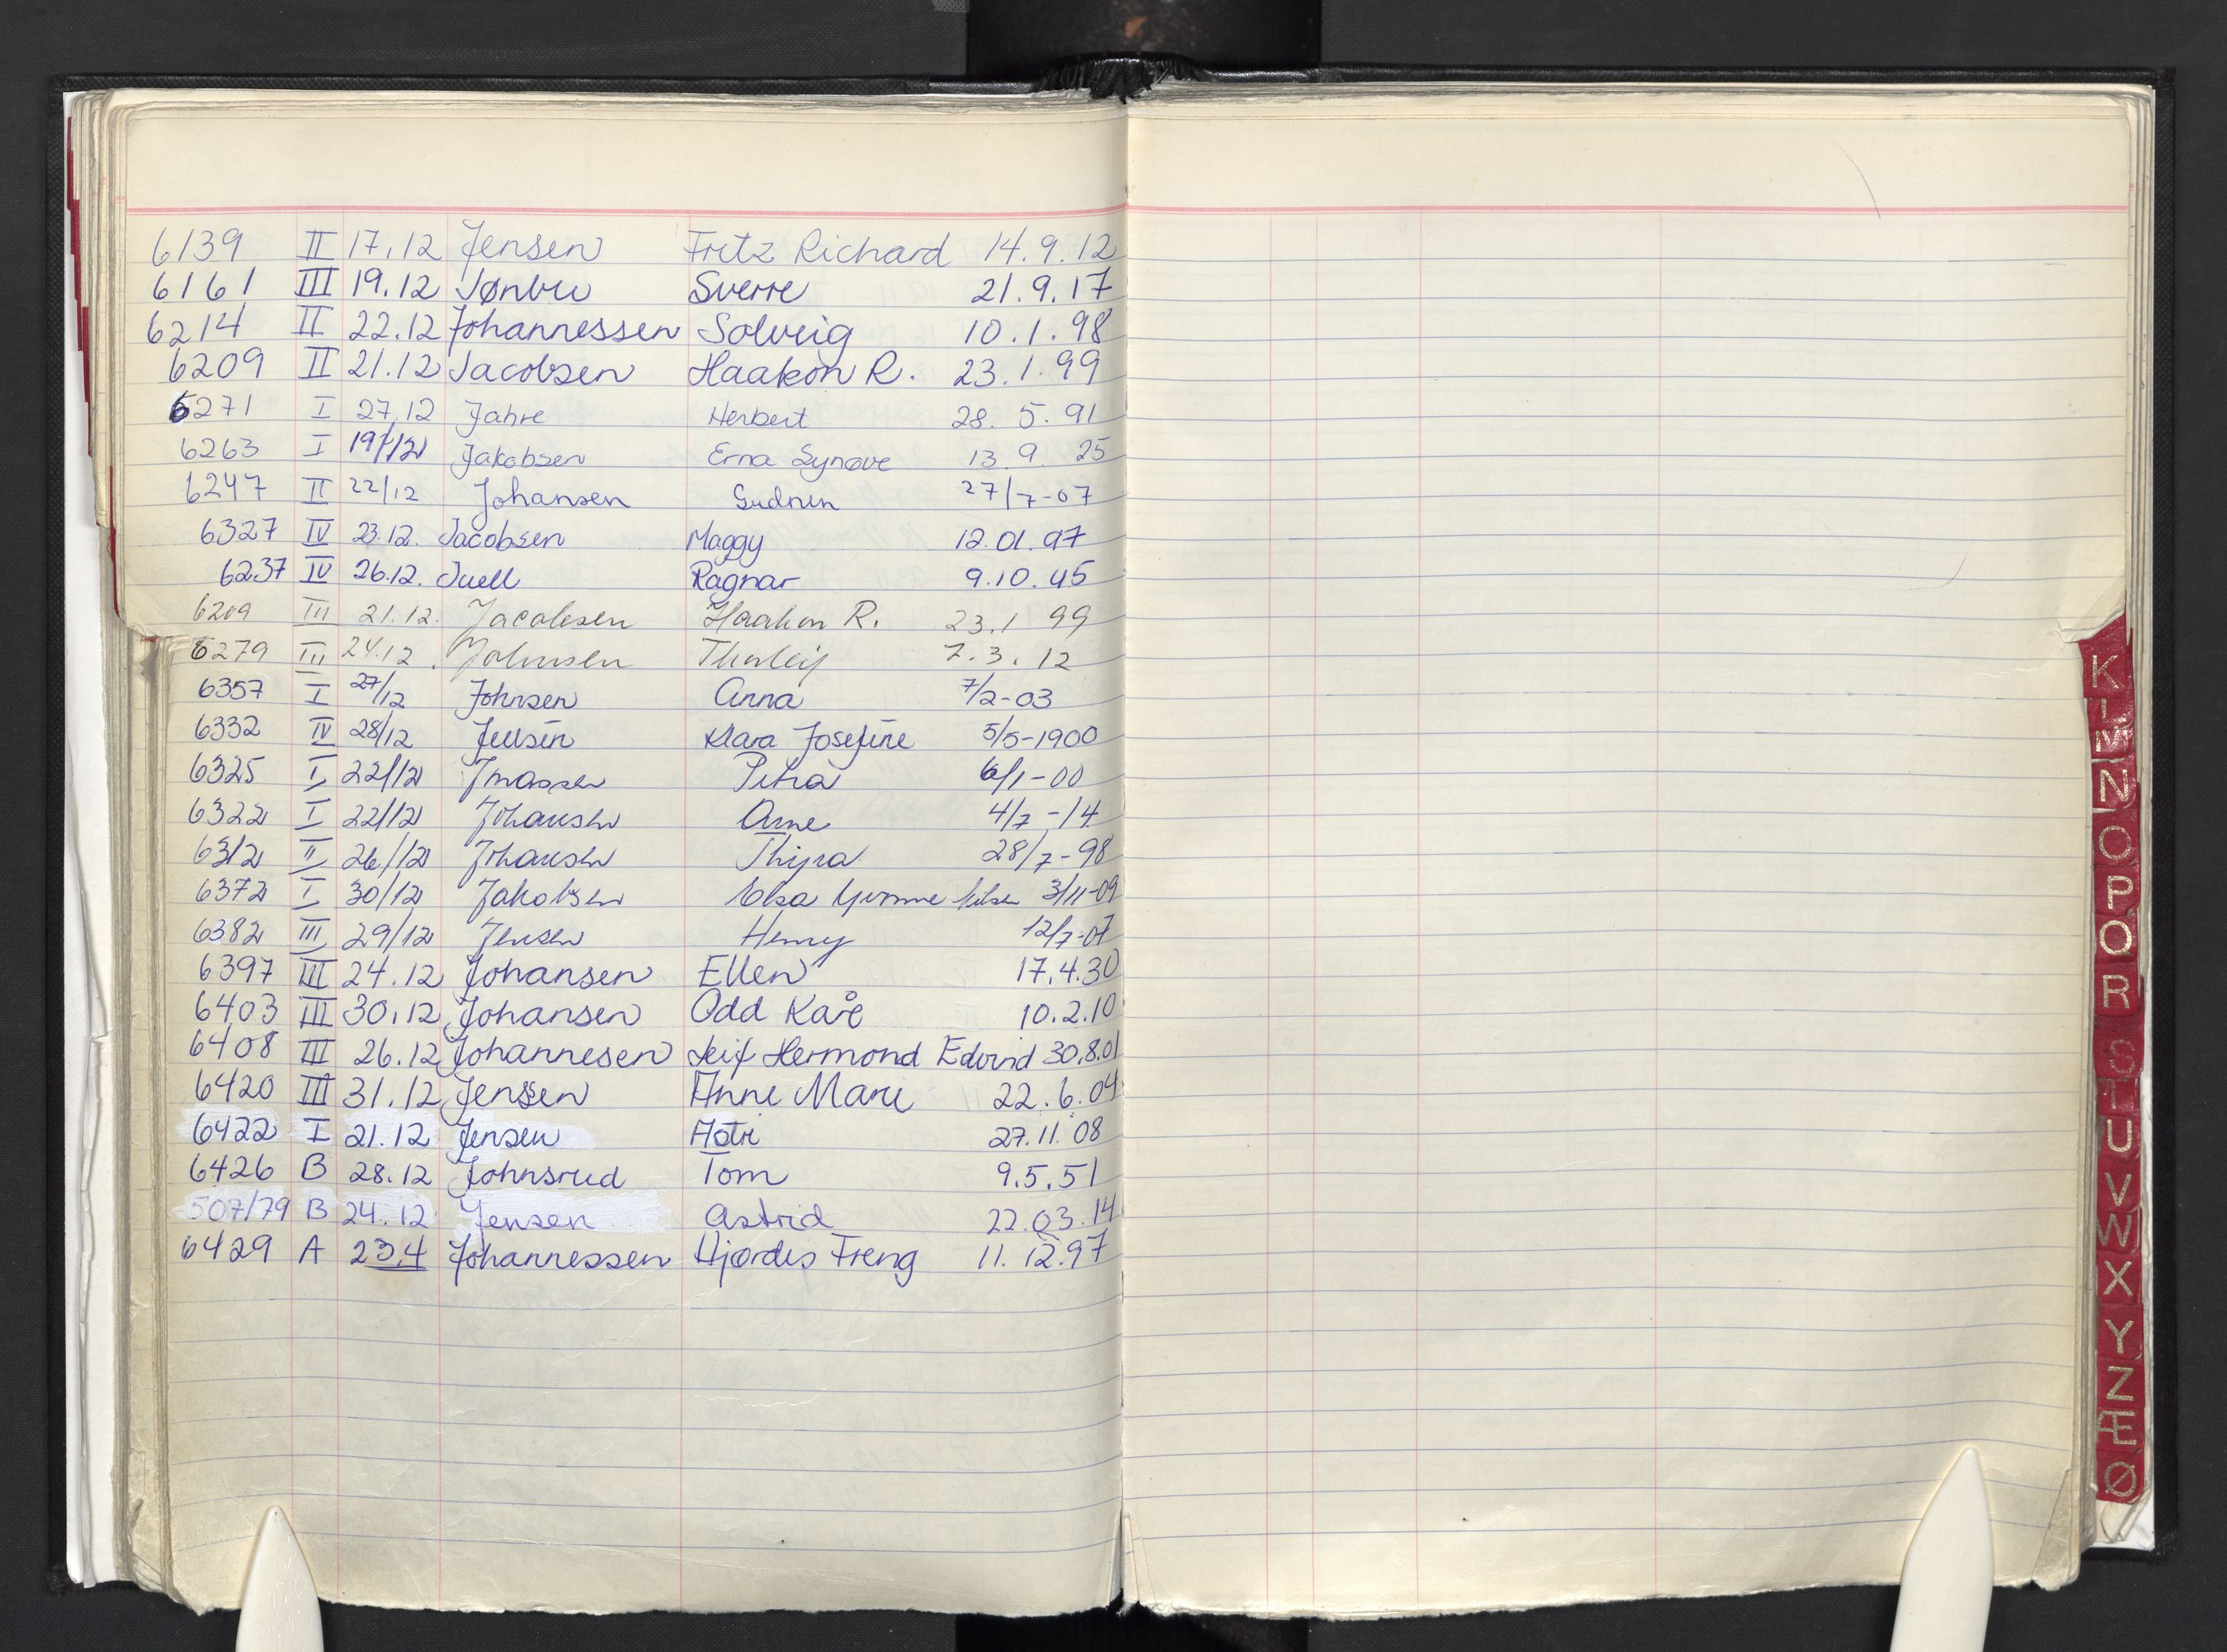 6139 II 17.12 Jensen Fritz Richard 14.9.12
6161 III 19.12 Jønbu Sverre 21.9.17
6214 II 22.12 Johannessen Solveig 10.1.98
6209 II 21.12 Jacobsen Haakon R. 23.1.99
6271 I 27.12 Jahre Herbert 28.5.91
6263 I 19/12 Jakobsen Erna Synøve 13.9.25
6247 II 22/12 Johansen Gudrun 27/7-07
6327 IV 23.12. Jacobsen Maggy 12.01.97
6237 IV 26.12. Juell Ragnar 9.10.45
6209 III 21.12. Jacobsen Haakon R. 23.1 99
6279 III 24.12. Johnsen Thorleif 7.3.12
6357 I 27/12 Johnsen Anna 7/2-03
6332 IV 28/12 Jensen Klara Josefine 5/5-1900
6325 I 22/12 Petra 6/1-00
6322 I 22/12 Johansen Arne 4/7-14
6312 II 26/12 Johansen Thyra 28/7-98
6372 I 30/12 Jakobsen Elsa Yvonne 3/11-09
6382 III 29/12 Jensen Henry 12/7-07
6397 III 24.12 Johansen Ellen 17.4.30
6403 III 30.12 Johansen Odd Kåre 10.2.10
6408 III 26.12 Johannesen Leif Hermond Edvind 30.8.01
6420 III 31.12 Jenssen Anne Marie 22.6.04
6422 I 21.12 Jensen Astri 27.11.08
6426 B 28.12 Johnsrud Tom 9.5.51
507/79 B 24.12 Jensen Astrid 22.03.14
6429 A 23.4 Johannessen Hjørdis Freng 11.12.97
K
L
M
N
O
P
Q
R
S
T
U
V
W
X
Y
Z
Æ
Ø